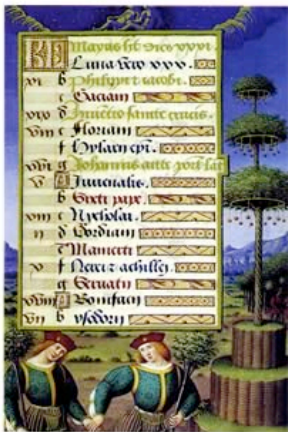 KL Mayus ht dies xxxi.
Luna vero xxx.
vi b Philippi z iacobi.
c Gaciani
d Inuẽcio sainte crucis.
c Floriani
f
g Johannis ante port lat
v A Iuuenalis.
b Sixti pape.
viii c Nycholai.
ii d Gordiani
Mamerti
v f Nerei z achillei
g Seruatii
A Bonifacii
vii b ysidorii